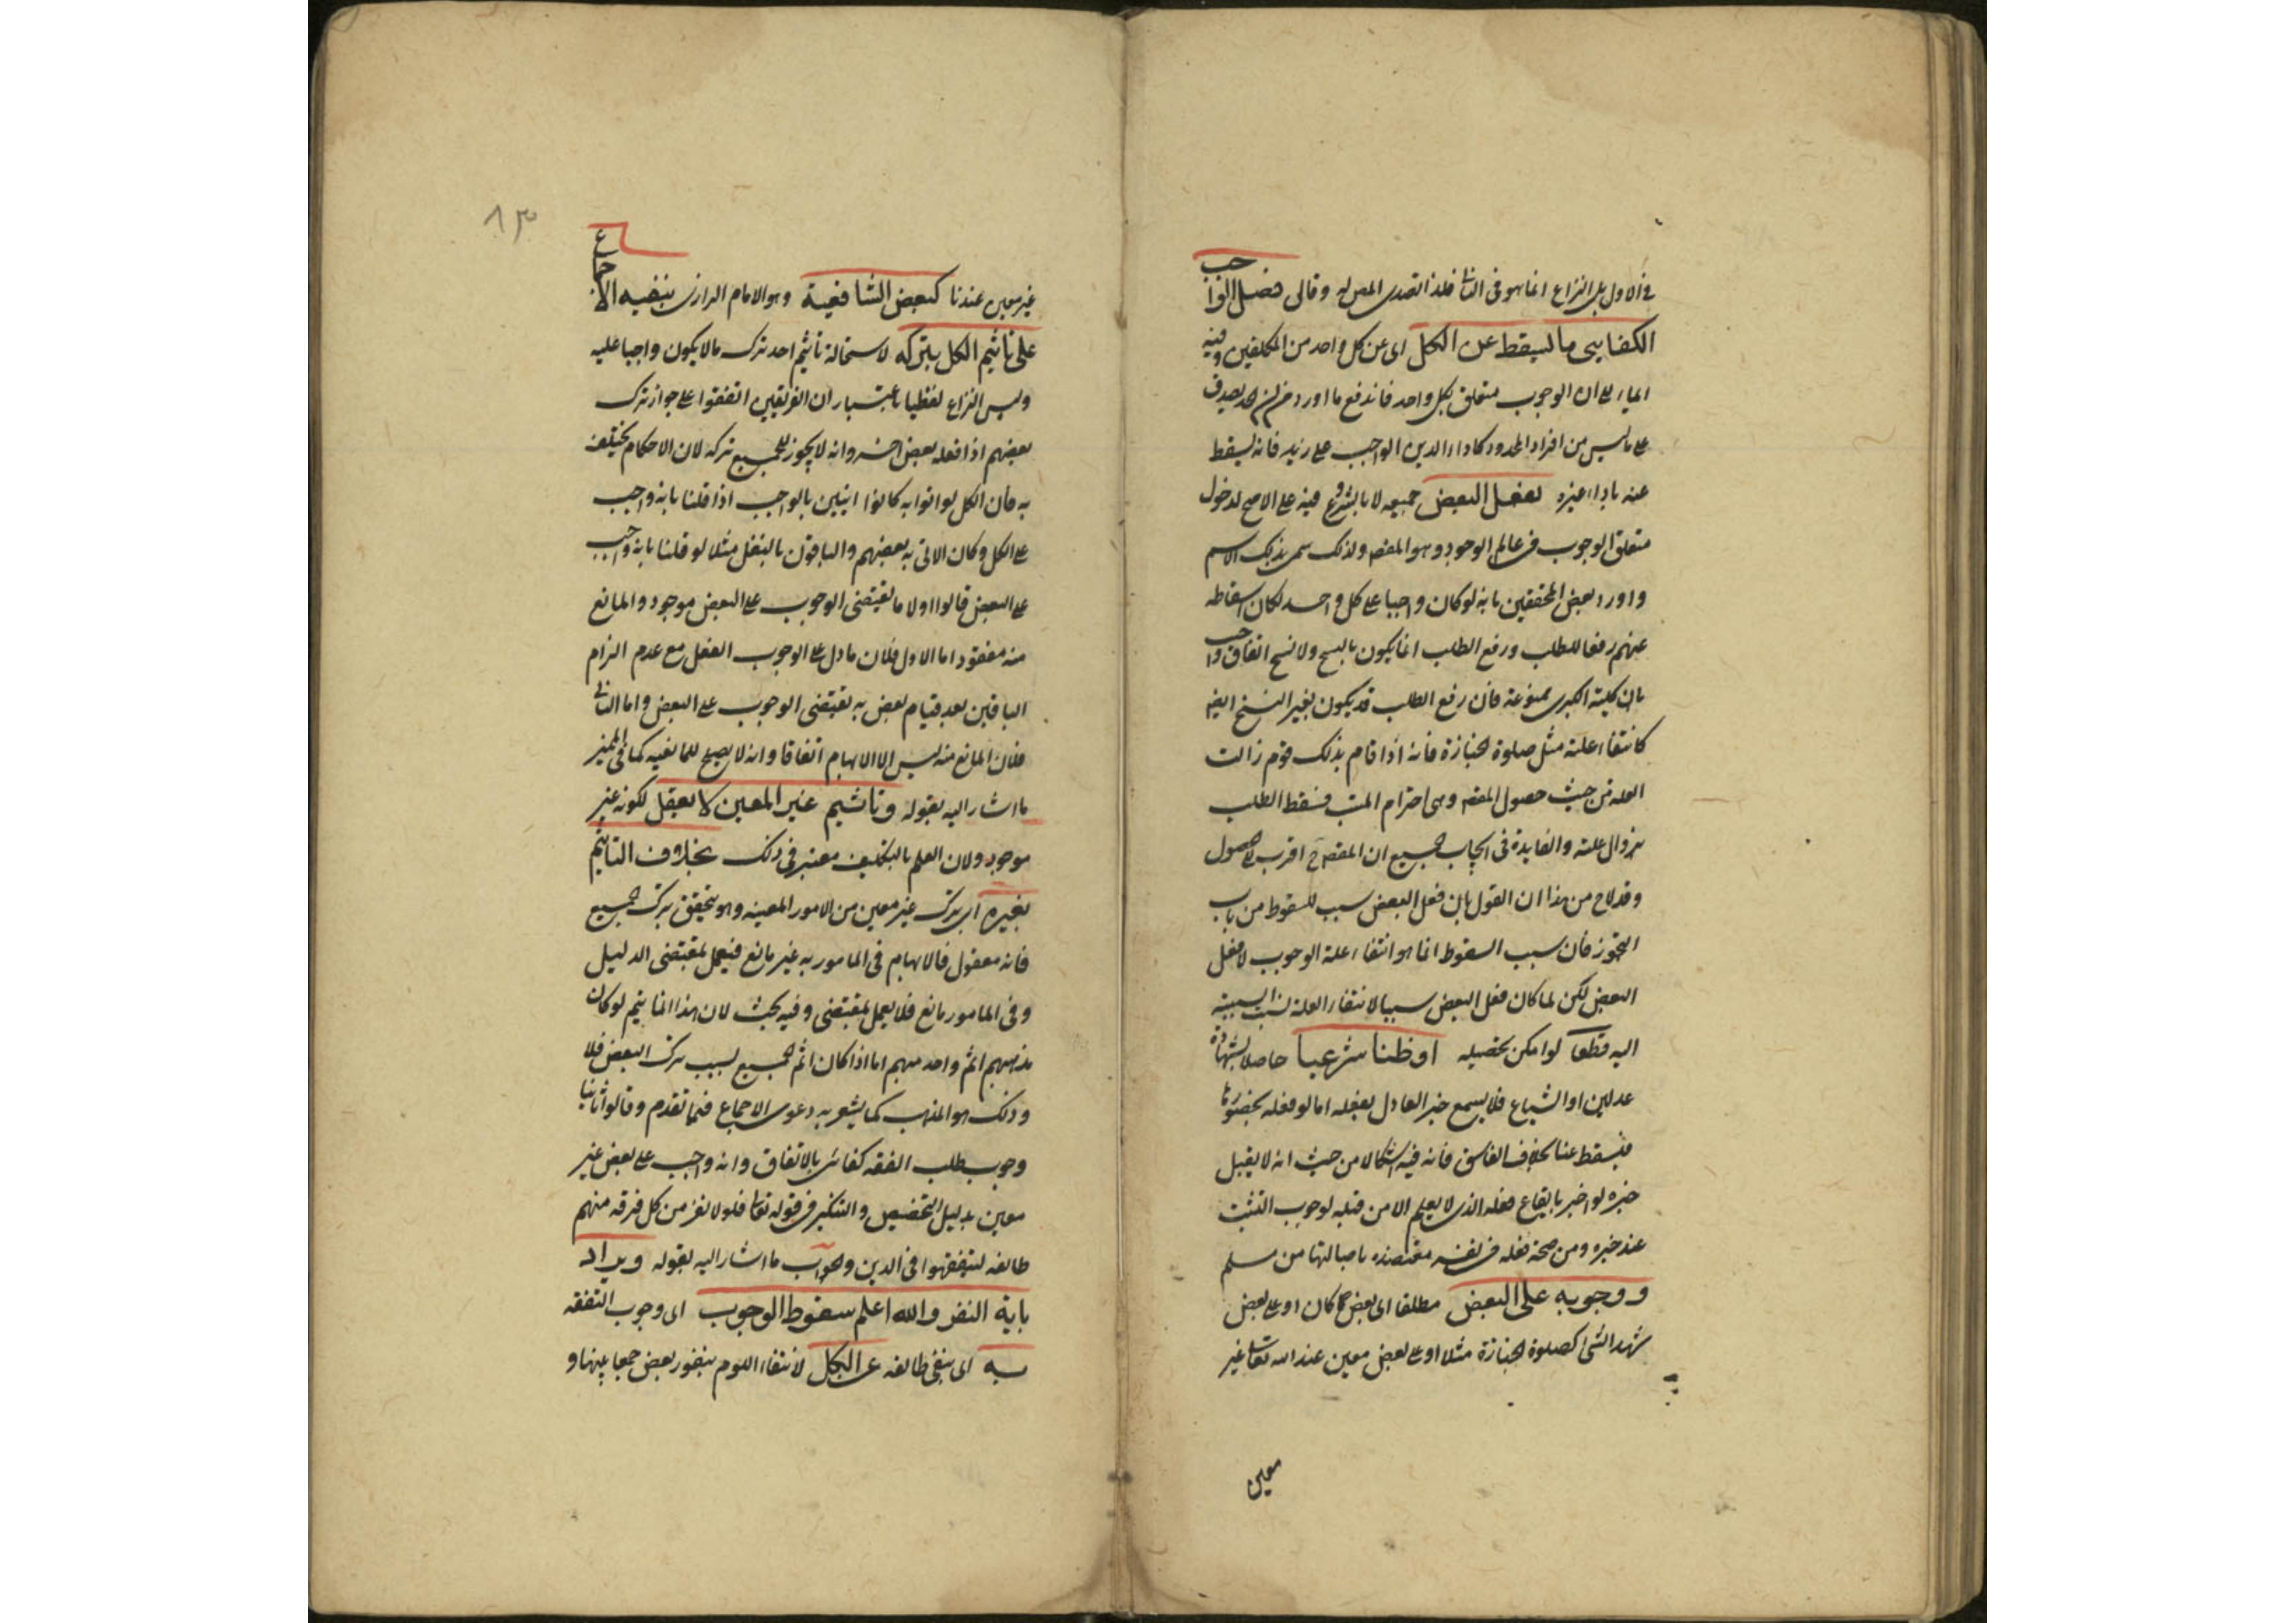 في الاول بل النزاع انما هو في الثاني فلذا تصدى المص له وقال فصل الواجب
الكفايي ما يسقط عن الكل اى عن كل واحد من المكلفين وفيه
ايماء الى ان الوجوب متعلق بكل واحد فاندفع ما اورد من ان الحد يصدق
على ما ليس من افراد المحدود كاداء الدين الواجب على زيد فانه يسقط
عنه باداء غيره بفعل البعض جميعه لا بالشروع فيه على الاصح لدخول
متعلق الوجوب في عالم الوجود وهو المقصود ولذلك سمى بذلك الاسم
واورد بعض المحققين بانه لو كان واجبا على كل واحد لكان اسقاطه
عنهم رفعا للطلب ورفع الطلب انما يكون بالنسخ ولا نسخ اتفاقا واجب
بان كلية الكبرى ممنوعة فان رفع الطلب قد يكون بغير النسخ ايضا
كانتفاء علته مثل صلوة الجنازة فانه اذا قام بذلك قوم زالت
العلة من حيث حصول المقصود وهى احترام الميت فسقط الطلب
بزوال علته والفايدة في ايجاب الجميع ان المقصود ح اقرب الى الحصول
وقد لاح من هذا ان القول بان فعل البعض سبب للسقوط من باب
التجوز فان سبب السقوط انما هو انتفاء علة الوجوب لا فعل
البعض لكن لما كان فعل البعض سببا لانتفاء العلة نسب السببية
اليه قطعا لو امكن تحصيله او ظنا شرعيا حاصلا بشهادة
عدلين او الشياع فلا يسمع خبر العادل بفعله اما لو فعله بحضورنا
فيسقط عنا بخلاف الفاسق فانه فيه اشكالا من حيث انه لا يقبل
خبره لو اخبر بايقاع فعله الذى لا يعلم الا من قبله لوجوب التثبت
عند خبره ومن صحة فعله في نفسه معتضده باصالتها من مسلم
ووجوبه على البعض مطلقا اى بعض كان او على بعض
شهد الشى كصلوة الجنازة مثلا او على بعض معين عند الله تعالى غير
معين
٨٣
غير معين عندنا كبعض الشافعية وهو الامام الرازى ينفيه الاجماع
على تأثيم الكل بتركه لاستحالة تأثيم احد بترك ما لا يكون واجبا عليه
وليس النزاع لفظيا باعتبار ان الفريقين اتفقوا على جواز ترك
بعضهم اذا فعله بعض اخر وانه لا يجوز للجميع تركه لان الاحكام يختلف
به فان الكل لو اتوا به كانوا اتيين بالواجب اذا قلنا بانه واجب
على الكل وكان الاتى به بعضهم والباقون بالنفل مثلا لو قلنا بانه واجب
على البعض قالوا اولا ما يقتضى الوجوب على البعض موجود والمانع
منه مفقود اما الاول فلان ما دل على الوجوب الفعل مع عدم الزام
الباقين بعد قيام بعض به يقتضى الوجوب على البعض واما الثاني
فلان المانع منه ليس الا الابهام اتفاقا وانه لا يصلح للمانعيه كما في المخير
ما اشار اليه بقوله وتأثيم غير المعين لا يعقل لكونه غير
موجود ولان العلم بالتكليف معتبر في ذلك بخلاف التأثيم
بغيره اى بترك غير معين من الامور المعينه وهو يتحقق بترك الجميع
فانه معقول فالابهام في المامور به غير مانع فيعمل بمقتضى الدليل
وفي المامور مانع فلا يعمل بمقتضى وفيه بحث لان هذا انما يتم لو كان
مذهبهم اثم واحد مبهم اما اذا كان اثم الجميع بسبب ترك البعض فلا
وذلك هو المذهب كما يشعر به دعوى الاجماع فيما تقدم وقالوا ثانيا
وجوب طلب الفقه كفائى بالاتفاق وانه واجب على بعض غير
معين بدليل التخصيص والتنكير في قوله تعالى فلولا نفر من كل فرقة منهم
طائفه ليتفقهوا في الدين والجواب ما اشار اليه بقوله ويراد
باية النفر والله اعلم سقوط الوجوب اى وجوب التفقه
به اى بنفى طائفه عن الكل لانتفاء اللوم بنفور بعض جمعا بينها و